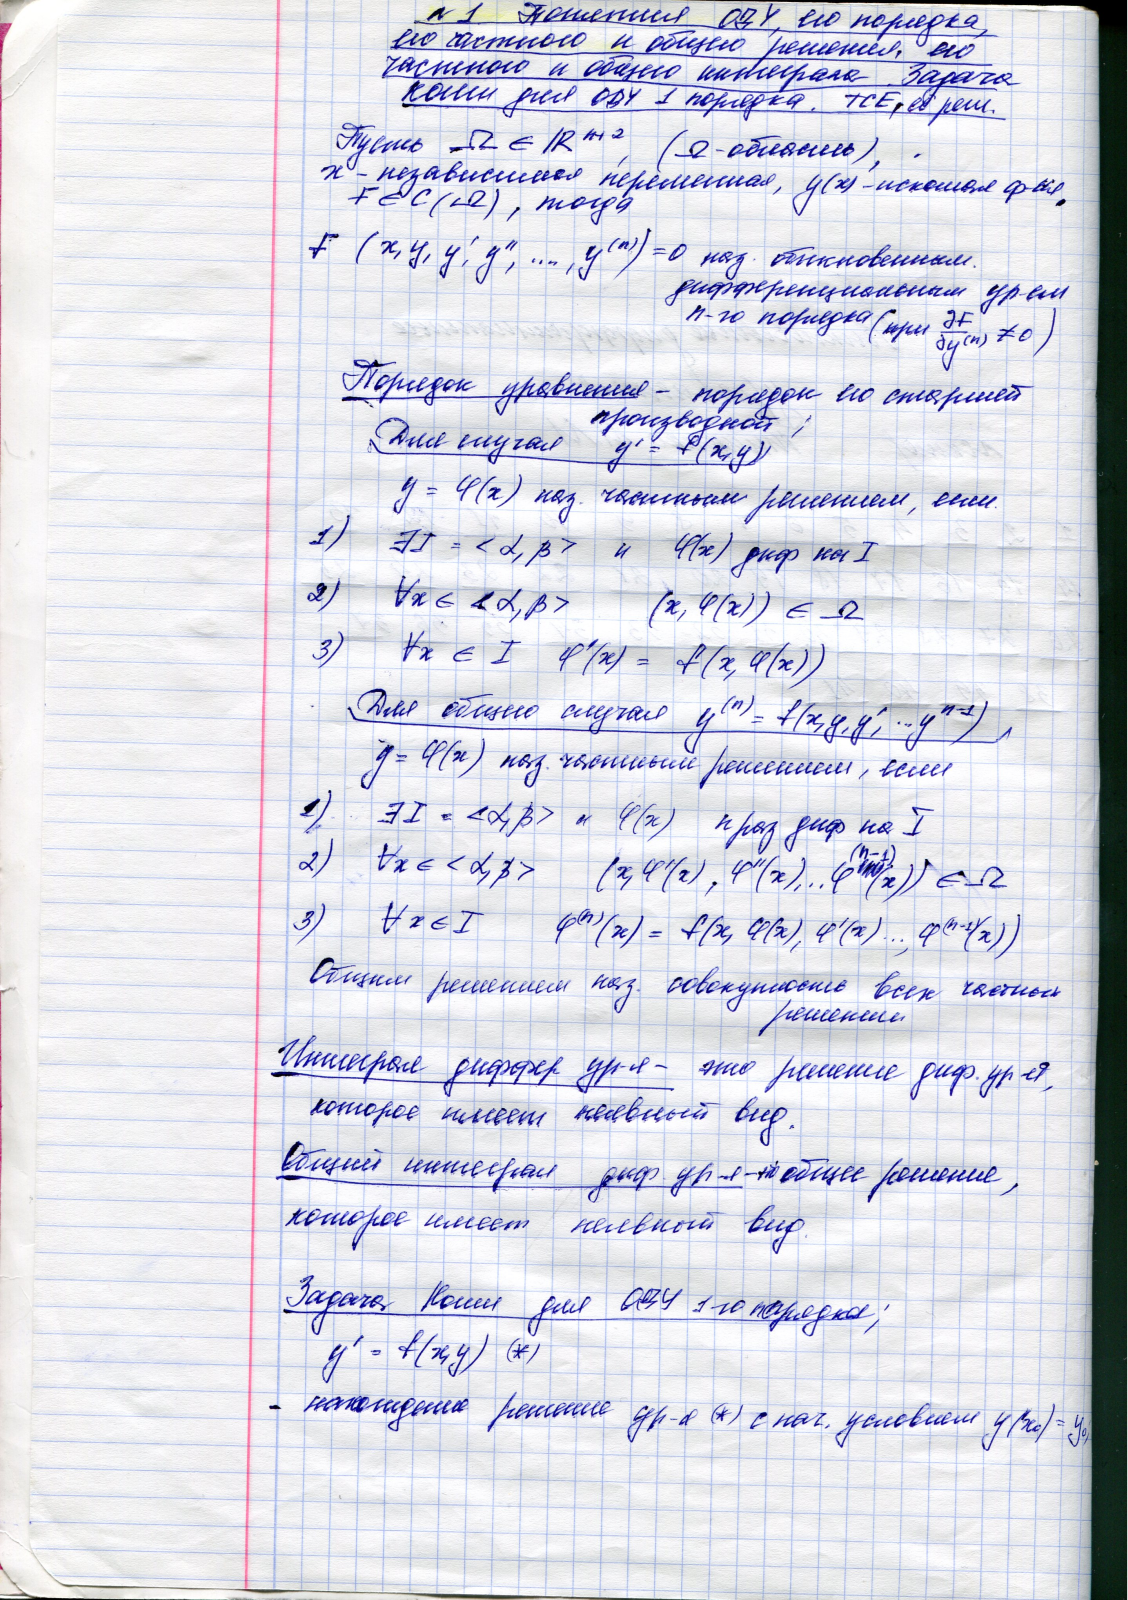 №1 Понятия ОДУ, его порядка,
его частного и общего решения, его
частного и общего интеграла. Задача
Коши для ОДУ 1 порядка. ТСЕ, её реш.
Пусть Ω ∈ ℝⁿ⁺², (Ω-область),
x - независимая переменная, y(x) - искомая ф-ия.
F ∈ C(Ω), тогда
F (x, y, y', y'', ..., y⁽ⁿ⁾) = 0 наз. обыкновенным
дифференциальным ур-ем
n-го порядка (при ∂F/∂y⁽ⁿ⁾ ≠ 0)
Порядок уравнения - порядок его старшей
производной;
Для случая y' = f(x,y)
y = φ(x) наз. частным решением, если
1) ∃I = <α, β> и φ(x) диф на I
2) ∀x ∈ <α, β> (x, φ(x)) ∈ Ω
3) ∀x ∈ I φ'(x) = f(x, φ(x))
Для общего случая y⁽ⁿ⁾ = f(x, y, y', ... yⁿ⁻¹)
y = φ(x) наз. частным решением, если
1) ∃I = <α, β> и φ(x) n раз диф на I
2) ∀x ∈ <α, β> (x, φ'(x), φ''(x), ... φ⁽ⁿ⁻¹⁾(x)) ∈ Ω
3) ∀x ∈ I φ⁽ⁿ⁾(x) = f(x, φ(x), φ'(x) ..., φ⁽ⁿ⁻¹⁾(x))
Общим решением наз. совокупность всех частных
решений
Интеграл диффер ур-я - это решение диф. ур-я,
которое имеет неявный вид.
Общий интеграл диф. ур-я - общее решение,
которое имеет неявный вид.
Задача Коши для ОДУ 1-го порядка;
y' = f(x,y) (*)
- нахождение решение ур-я (*) с нач. условием y(x₀) = y₀,